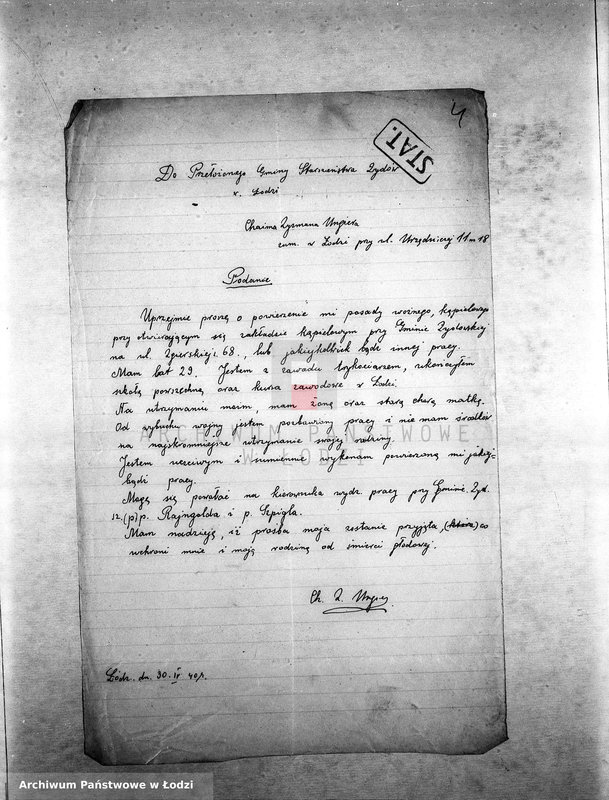 4
STAT.
Do Przełożonego Gminy Starszeństwa Żydów
w Łodzi
Chaima Zyzmana Ungiera
zam. w Łodzi przy ul. Urzędniczej 11 m 18
Podanie
Uprzejmie proszę o powierzenie mi posady woźnego, kąpielowego
przy otwierającym się zakładzie kąpielowym przy Gminie Żydowskiej
na ul. Zgierskiej 68., lub jakiejkolwiek bądź innej pracy.
Mam lat 29. Jestem z zawodu trykociarzem, ukończyłem
szkołę powszechną oraz kursa zawodowe w Łodzi.
Na utrzymaniu mam, mam żonę oraz starą chorą matkę.
Od wybuchu wojny jestem pozbawiony pracy i nie mam środków
na najskromniejsze utrzymanie swojej rodziny.
Jestem uczciwym i sumiennie wykonam powierzoną mi jakiej-
bądź pracy.
Mogę się powołać na kierownika wydz. pracy przy Gminie Żyd.
12. (p) p. Rajngolda i p. Szpigla.
Mam nadzieję, iż prośba moja zostanie przyjęta, (która) co
uchroni mnie i moją rodzinę od śmierci głodowej.
Ch. Z. Ungier
Łódź. dn. 30. IV 40 r.
ARCHIWUM PAŃSTWOWE
W ŁODZI
Archiwum Państwowe w Łodzi